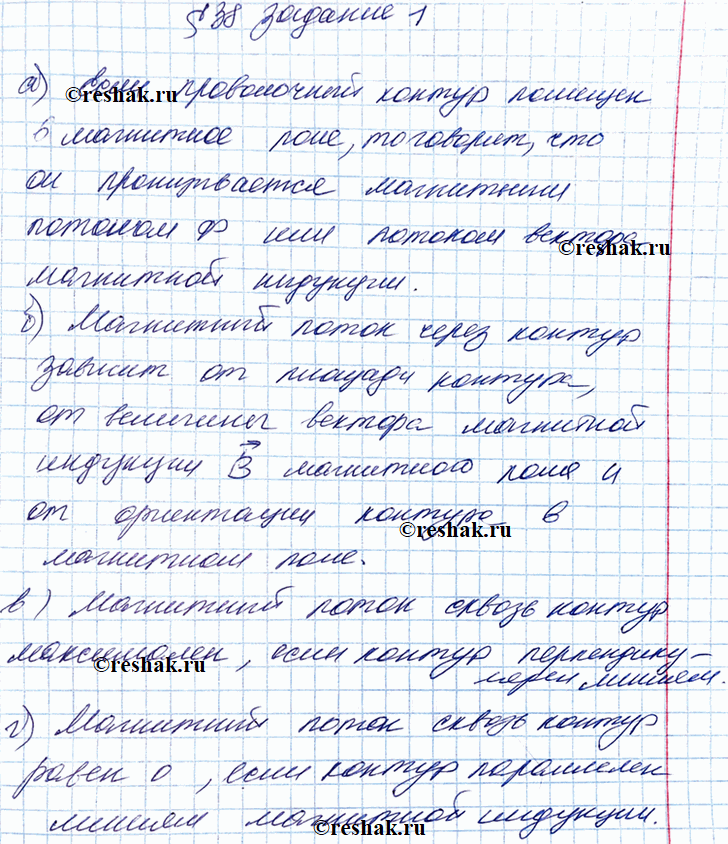 §38 Задание 1
а) Если проволочный контур помещен
©reshak.ru
в магнитное поле, то говорят, что
он пронизывается магнитным
потоком Ф или потоком вектора
©reshak.ru
магнитной индукции.
б) Магнитный поток через контур
зависит от площади контура,
от величины вектора магнитной
индукции B магнитного поля и
от ориентации контура в
©reshak.ru
магнитном поле.
в) Магнитный поток сквозь контур
максимален, если контур перпендику-
©reshak.ru
лярен линиям.
г) Магнитный поток сквозь контур
равен 0, если контур параллелен
линиям магнитной индукции.
©reshak.ru